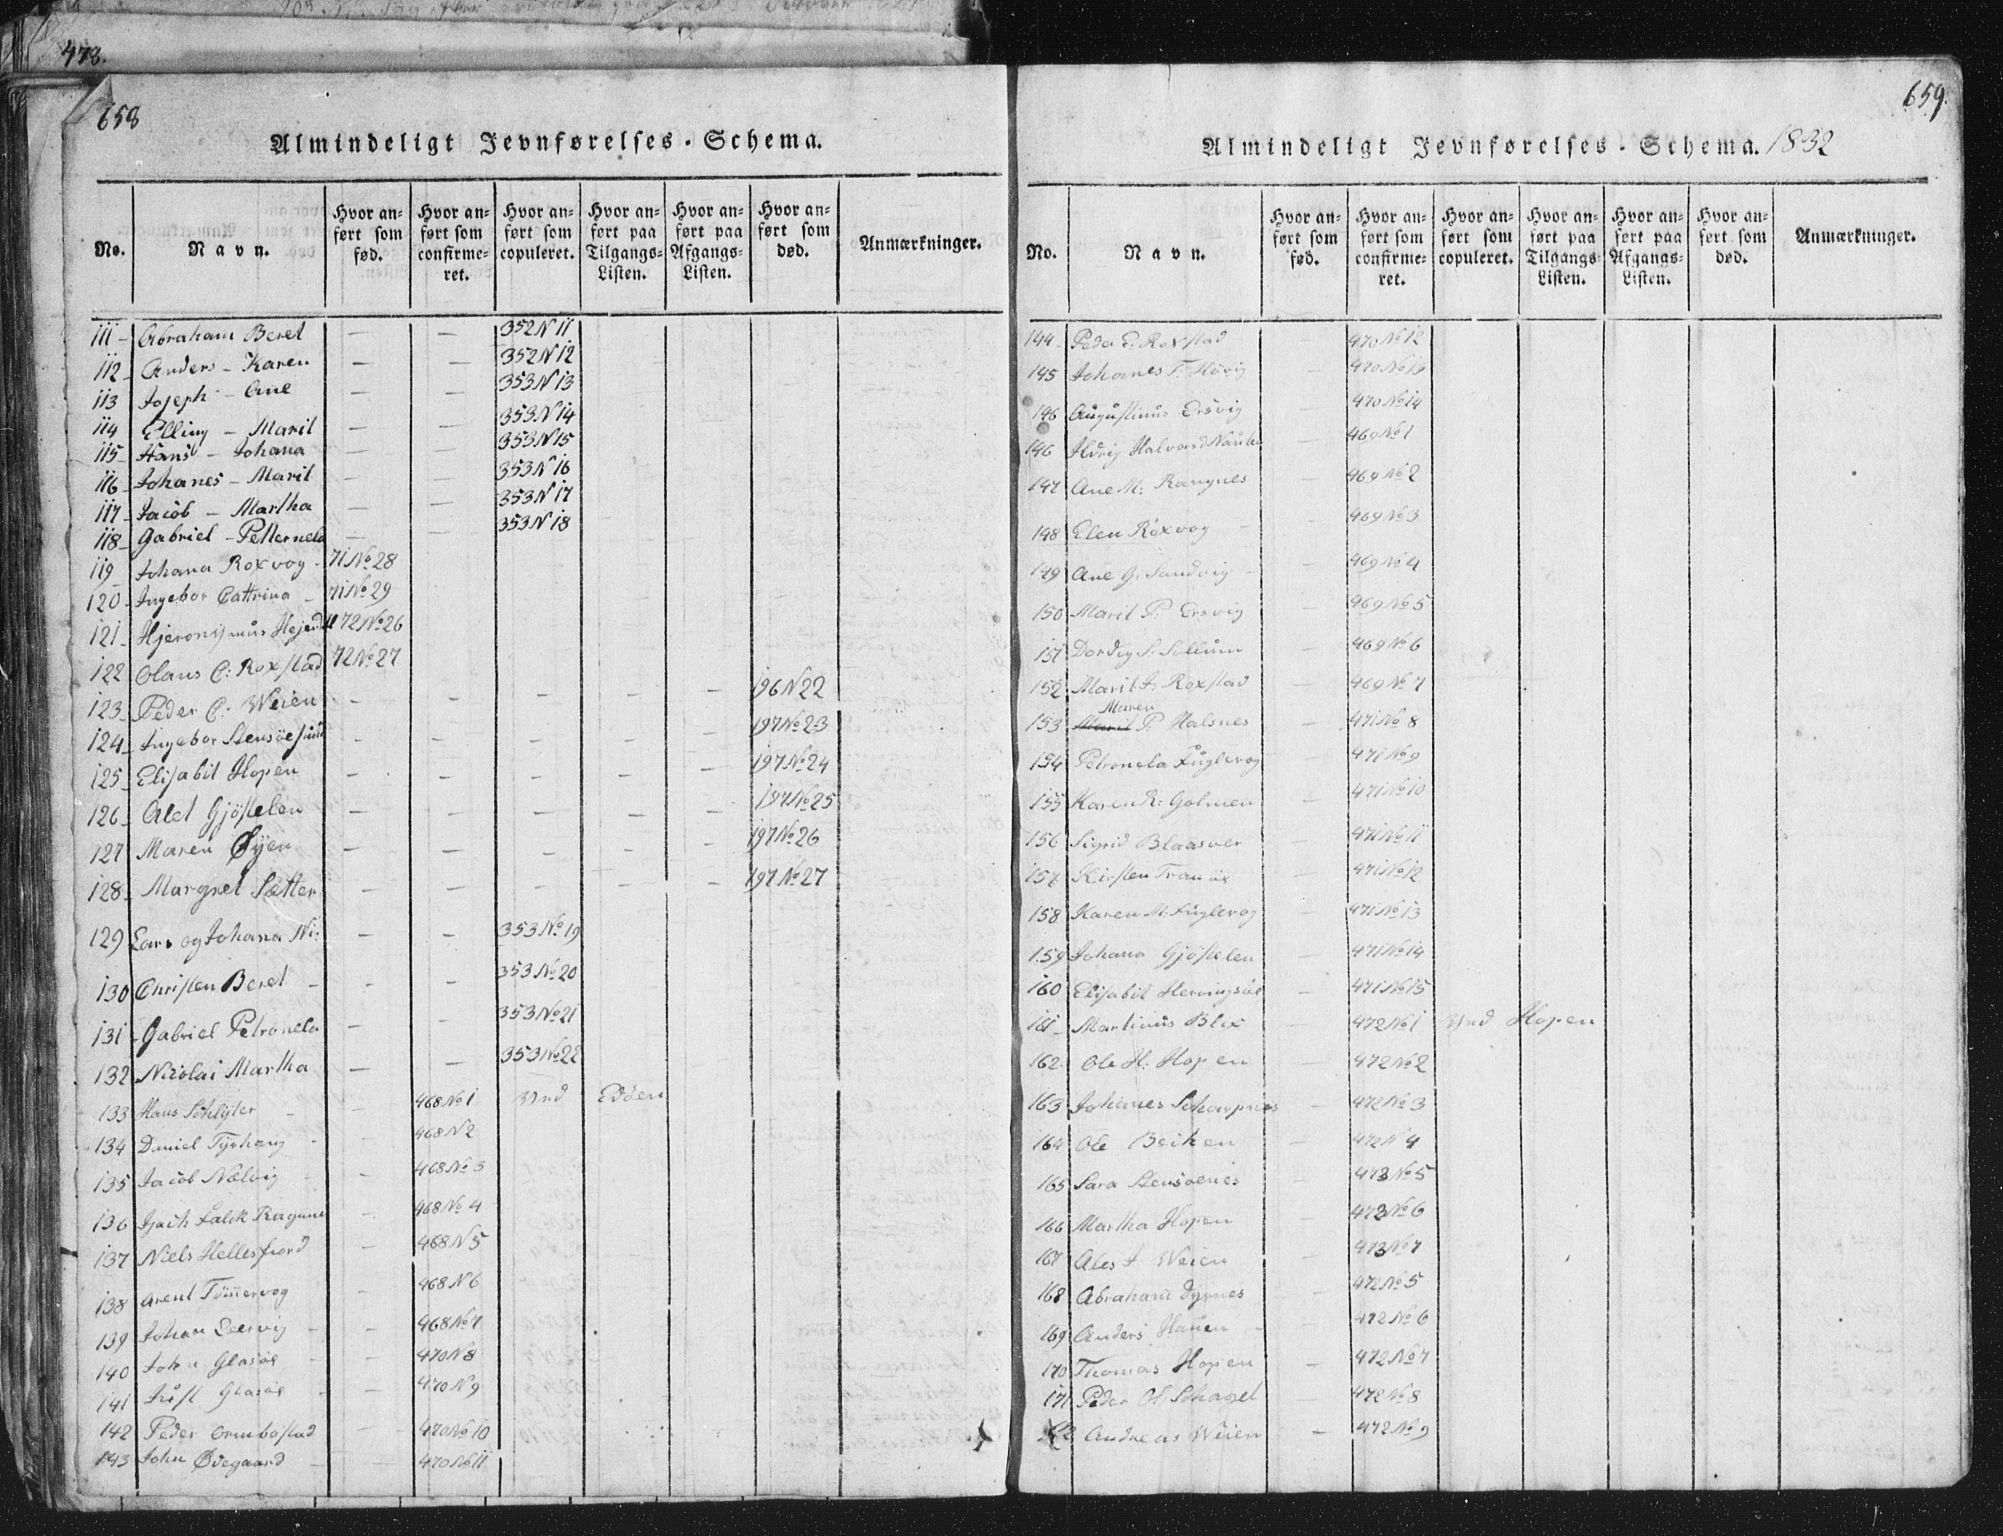 478.
658
Almindeligt Jevnførelses-Schema.
No. Navn. Hvor anført som fød. Hvor anført som confirmeret. Hvor anført som copuleret. Hvor anført paa Tilgangs-Listen. Hvor anført paa Afgangs-Listen. Hvor anført som død. Anmærkninger.
111 - Abraham Beret — — 352 N 11
112 - Anders - Karen — — 352 N 12
113 Joseph - Ane — — 353 N 13
114 Elling - Marit — — 353 N 14
115 - Hans - Johana — — 353 N 15
116 - Johanes - Marit — — 353 N 16
117 - Jacob - Martha — — 353 N 17
118 - Gabriel - Petternela — 353 N 18
119 Johana Roxvog - 71 No 28
120 - Ingebor Cattrina - 71 No 29
121 - Hjeronijmus 72 No 26
122 Olaus C: Roxstad 72 No 27
123 - Peder C: Weien - — — — — 196 N 22
124 - Ingebor — — — — — 197 No 23
125 Elisabit Hopen — — — — — 197 No 24
126 - Alet Gjöstelen — — — — — 197 No 25
127 Maren Øyen — — — — — 197 No 26
128 - Margret Sætter — — — — — 197 No 27
129 Lars og Johana Ni: — — 353 No 19
130 Christen Beret - - - 353 No 20
131 - Gabriel Petronela — - 353 No 21
132 Nicolai Martha — — 353 No 22
133 Hans Schlyter - — 468 No 1 Vnd Edöen
134 Daniel Tyrhaug - — 468 N 2
135 Jacob Nælvig - — 468 No 3
136 Falck — 468 No 4
137 Niels Hellesfiord — 468 N 5
138 Arent Tømmervog — 468 N 6
139 Johan Leervig - — 468 No 7
140 Glasöe - — 470 N 8
141 Glasöe - — 470 N 9
142 Peder Ormböstad — 470 No 10
143 John Ødegaard - 470 No 11
659.
Almindeligt Jevnførelses-Schema. 1832
No. Navn. Hvor anført som fød. Hvor anført som confirmeret. Hvor anført som copuleret. Hvor anført paa Tilgangs-Listen. Hvor anført paa Afgangs-Listen. Hvor anført som død. Anmærkninger.
144 - Peder E: Roxstad — 470 No 12
145 Johanes F: Hövig — 470 No 13
146 Augustinus Ersvig — 470 No 14
146 Halvorsd — 469 No 1
147 Ane M: Rangnes — 469 No 2
148 Elen Roxvog - — 469 No 3
149 Ane G: Sandvig - — 469 No 4
150 Marit P: Ersvig — 469 No 5
151 Dordy S: Sollum — 469 No 6
152 Marit J: Roxstad — 469 No 7
Maren
153 Marit P. Halsnes — 471 No 8
154 Petronela Fuglevog — 471 No 9
155 Karen R: Golmen — 471 No 10
156 Sigrid Blaasver — 471 No 11
157 Kirsten Tranöe — 471 No 12
158 Karen M: Fuglevog — 471 No 13
159 Johana Gjöstelen — 471 No 14
160 Elisabit — 471 No 15
161 - Martinus Blix — 472 No 1 Vnd Hopen
162 Ole H: Hopen — 472 No 2
163 Johanes Scharpnes — 472 No 3
164 Ole Beiken — 472 N 4
165 Sara Stensöenes — 473 No 5
166 Martha Hopen — 473 No 6
167 Ales J Weien — 473 No 7
168 Abraham Dyrnes — 472 No 5
169 Anders Hauen - — 472 No 6
170 Thomas Hopen — 472 No 7
171 Peder Ol. Schaget — 472 No 8
Andreas Weien — 472 No 9